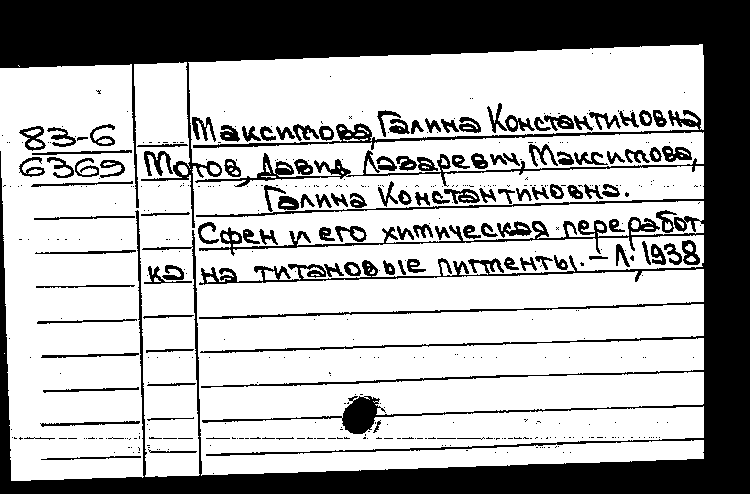 83-6 Максимова, Галина Константиновна
6369 Мотов, Давид Лазаревич, Максимова,
Галина Константиновна.
Сфен и его химическая переработ-
ка на титановые пигменты. – Л., 1938.